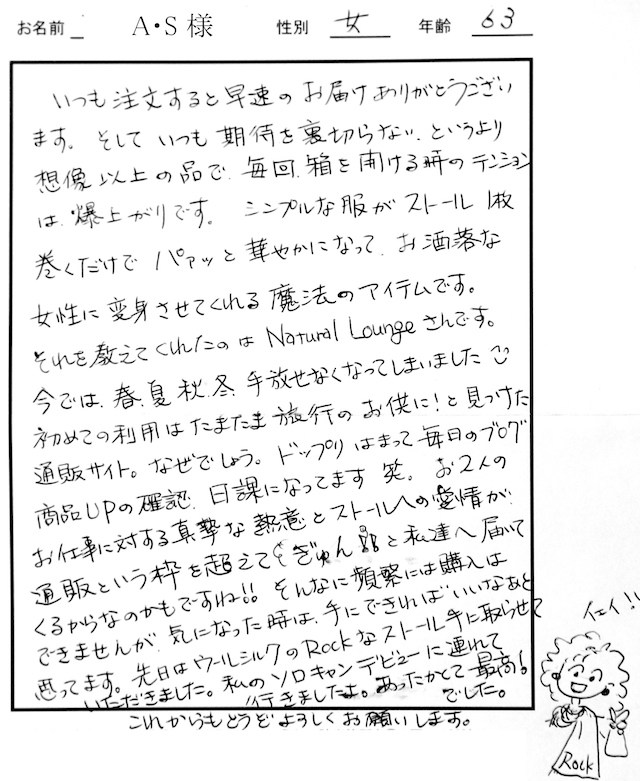 お名前 A・S 様 性別 女 年齢 63
いつも注文すると早速のお届けありがとうござい
ます。そしていつも期待を裏切らない、というより
想像以上の品で、毎回、箱を開ける時のテンション
は、爆上がりです。シンプルな服がストール1枚
巻くだけでパァッと華やかになって、お洒落な
女性に変身させてくれる魔法のアイテムです。
それを教えてくれたのはNatural Loungeさんです。
今では、春、夏、秋、冬、手放せなくなってしまいました
初めての利用はたまたま旅行のお供に!と見つけた
通販サイト。なぜでしょう。ドップリはまって毎日のブログ
商品UPの確認、日課になってます 笑。お2人の
お仕事に対する真摯な熱意とストールへの愛情が、
通販という枠を超えてぎゅん!!と私達へ届いて
くるからなのかもですね!!そんなに頻繁には購入は
できませんが、気になった時は、手にできればいいなぁと
思ってます。先日はウールシルクのRockなストール手に取らせて
いただきました。私のソロキャンデビューに連れて
行きましたよ。あったかとて最高!
でした。
これからもどうぞよろしくお願いします。
イェイ!!
Rock